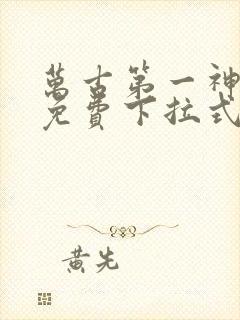 萬古第一神
免費下拉式
黃先